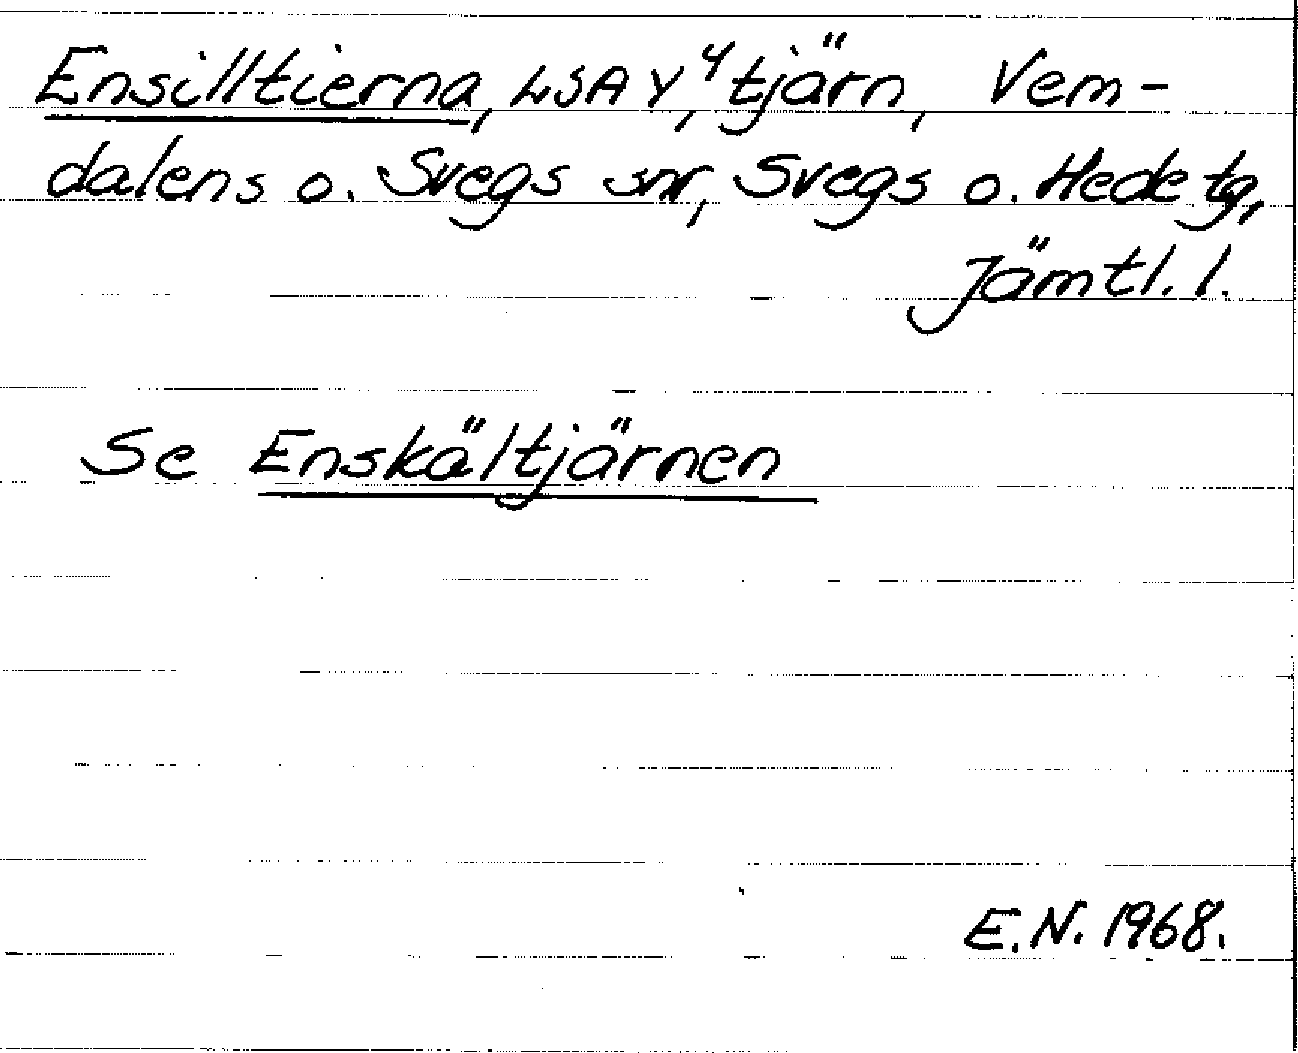 Ensilltierna, LSA Y, 4 tjärn, Vem-
dalens o. Svegs snr, Svegs o. Hede tg,
Jämtl. l.
Se Enskältjärnen
E.N. 1968.